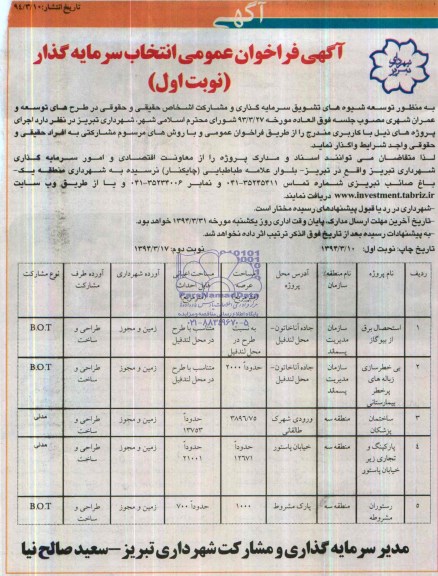 تاریخ انتشار: ۹۴/۳/۱۰
آگهی
شهرداری تبریز
آگهی فراخوان عمومی انتخاب سرمایه گذار
(نوبت اول)
به منظور توسعه شیوه های تشویق سرمایه گذاری و مشارکت اشخاص حقیقی و حقوقی در طرح های توسعه و
عمران شهری مصوب جلسه فوق العاده مورخه ۹۳/۳/۲۷ شورای محترم اسلامی شهر، شهرداری تبریز در نظر دارد اجرای
پروژه های ذیل با کاربری مندرج را از طریق فراخوان عمومی و با روش های مرسوم مشارکتی به افراد حقیقی و
حقوقی واجد شرایط واگذار نمایند.
لذا متقاضیان می توانند اسناد و مدارک پروژه را از معاونت اقتصادی و امور سرمایه گذاری
شهرداری تبریز واقع در تبریز- بلوار علامه طباطبایی (چایکنار) نرسیده به شهرداری منطقه یک-
باغ صائب تبریزی شماره تماس ۳۵۲۳۵۴۱۱-۰۴۱ و نمابر ۳۵۲۳۴۰۰۶-۰۴۱ و یا از طریق وب سایت
www.investment.tabriz.ir دریافت نمایند.
-شهرداری در رد یا قبول پیشنهادهای رسیده مختار است.
-تاریخ آخرین مهلت ارسال مدارک پایان وقت اداری روز یکشنبه مورخه ۱۳۹۴/۳/۳۱ خواهد بود.
-به پیشنهادات رسیده بعد از تاریخ فوق الذکر ترتیب اثر داده نخواهد شد.
تاریخ چاپ: نوبت اول: ۱۳۹۴/۳/۱۰ نوبت دوم: ۱۳۹۴/۳/۱۷
ردیف نام پروژه نام منطقه/سازمان آدرس محل پروژه مساحت عرصه مساحت اعیانی قابل احداث آورده شهرداری آورده طرف مشارکت نوع مشارکت
۱ استحصال برق از بیوگاز سازمان مدیریت پسماند جاده آناخاتون- محل لندفیل به نسبت طرح در محل لندفیل متناسب با طرح در محل لندفیل زمین و مجوز طراحی و ساخت B.O.T
۲ بی خطرسازی زباله های پرخطر بیمارستانی سازمان مدیریت پسماند جاده آناخاتون- محل لندفیل حدوداً ۲۰۰۰ متناسب با طرح در محل لندفیل زمین و مجوز طراحی و ساخت B.O.T
۳ ساختمان پزشکان منطقه سه ورودی شهرک طالقانی ۳۸۹۶/۷۵ حدوداً ۱۳۷۵۳ زمین و مجوز طراحی و ساخت مدنی
۴ پارکینگ و تجاری زیر خیابان پاستور منطقه سه خیابان پاستور حدوداً ۱۲۶۷۱ حدوداً ۲۱۰۰۱ زمین و مجوز طراحی و ساخت مدنی
۵ رستوران مشروطه منطقه سه پارک مشروطه ۱۰۰۰ حدوداً ۷۰۰ زمین و مجوز طراحی و ساخت B.O.T
مدیر سرمایه گذاری و مشارکت شهرداری تبریز-سعید صالح نیا